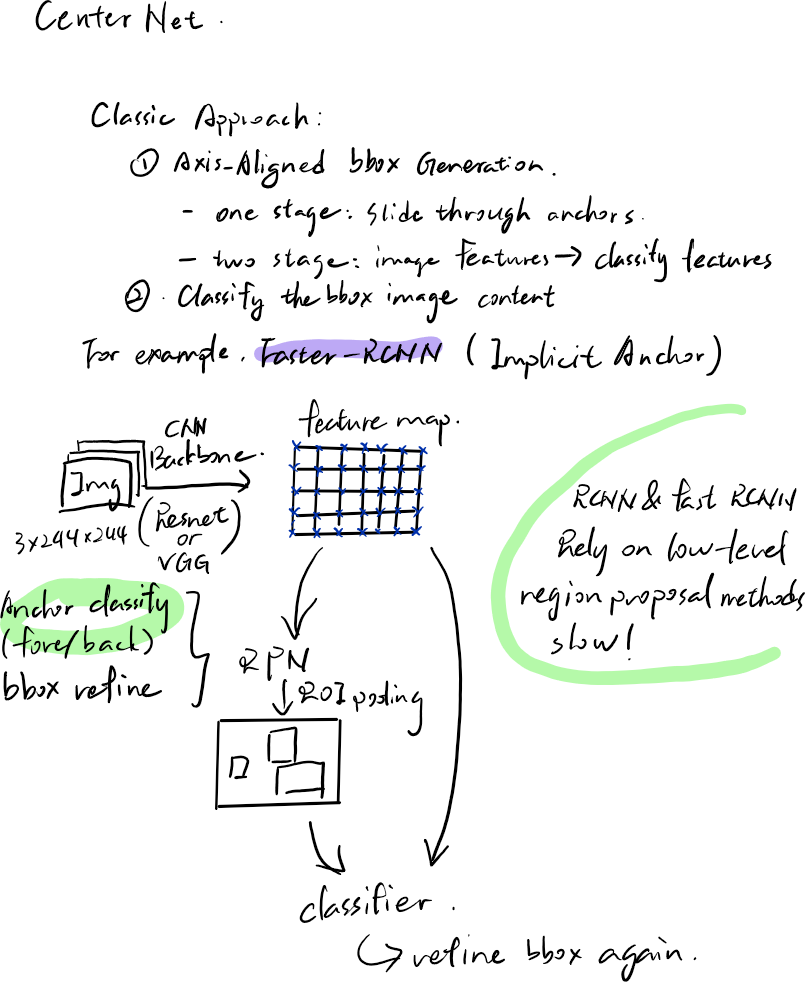 Center Net.
Classic Approach:
① Axis-Aligned bbox Generation.
- one stage: Slide through anchors.
- two stage: image features → classify features
② Classify the bbox image content
For example. Faster-RCNN (Implicit Anchor)
CNN
Backbone.
feature map.
Img
3x244x244
(Resnet
or
VGG)
RCNN & fast RCNN
Rely on low-level
region proposal methods
slow!
Anchor classify
(fore/back)
bbox refine
RPN
↓ ROI pooling
classifier.
↪ refine bbox again.